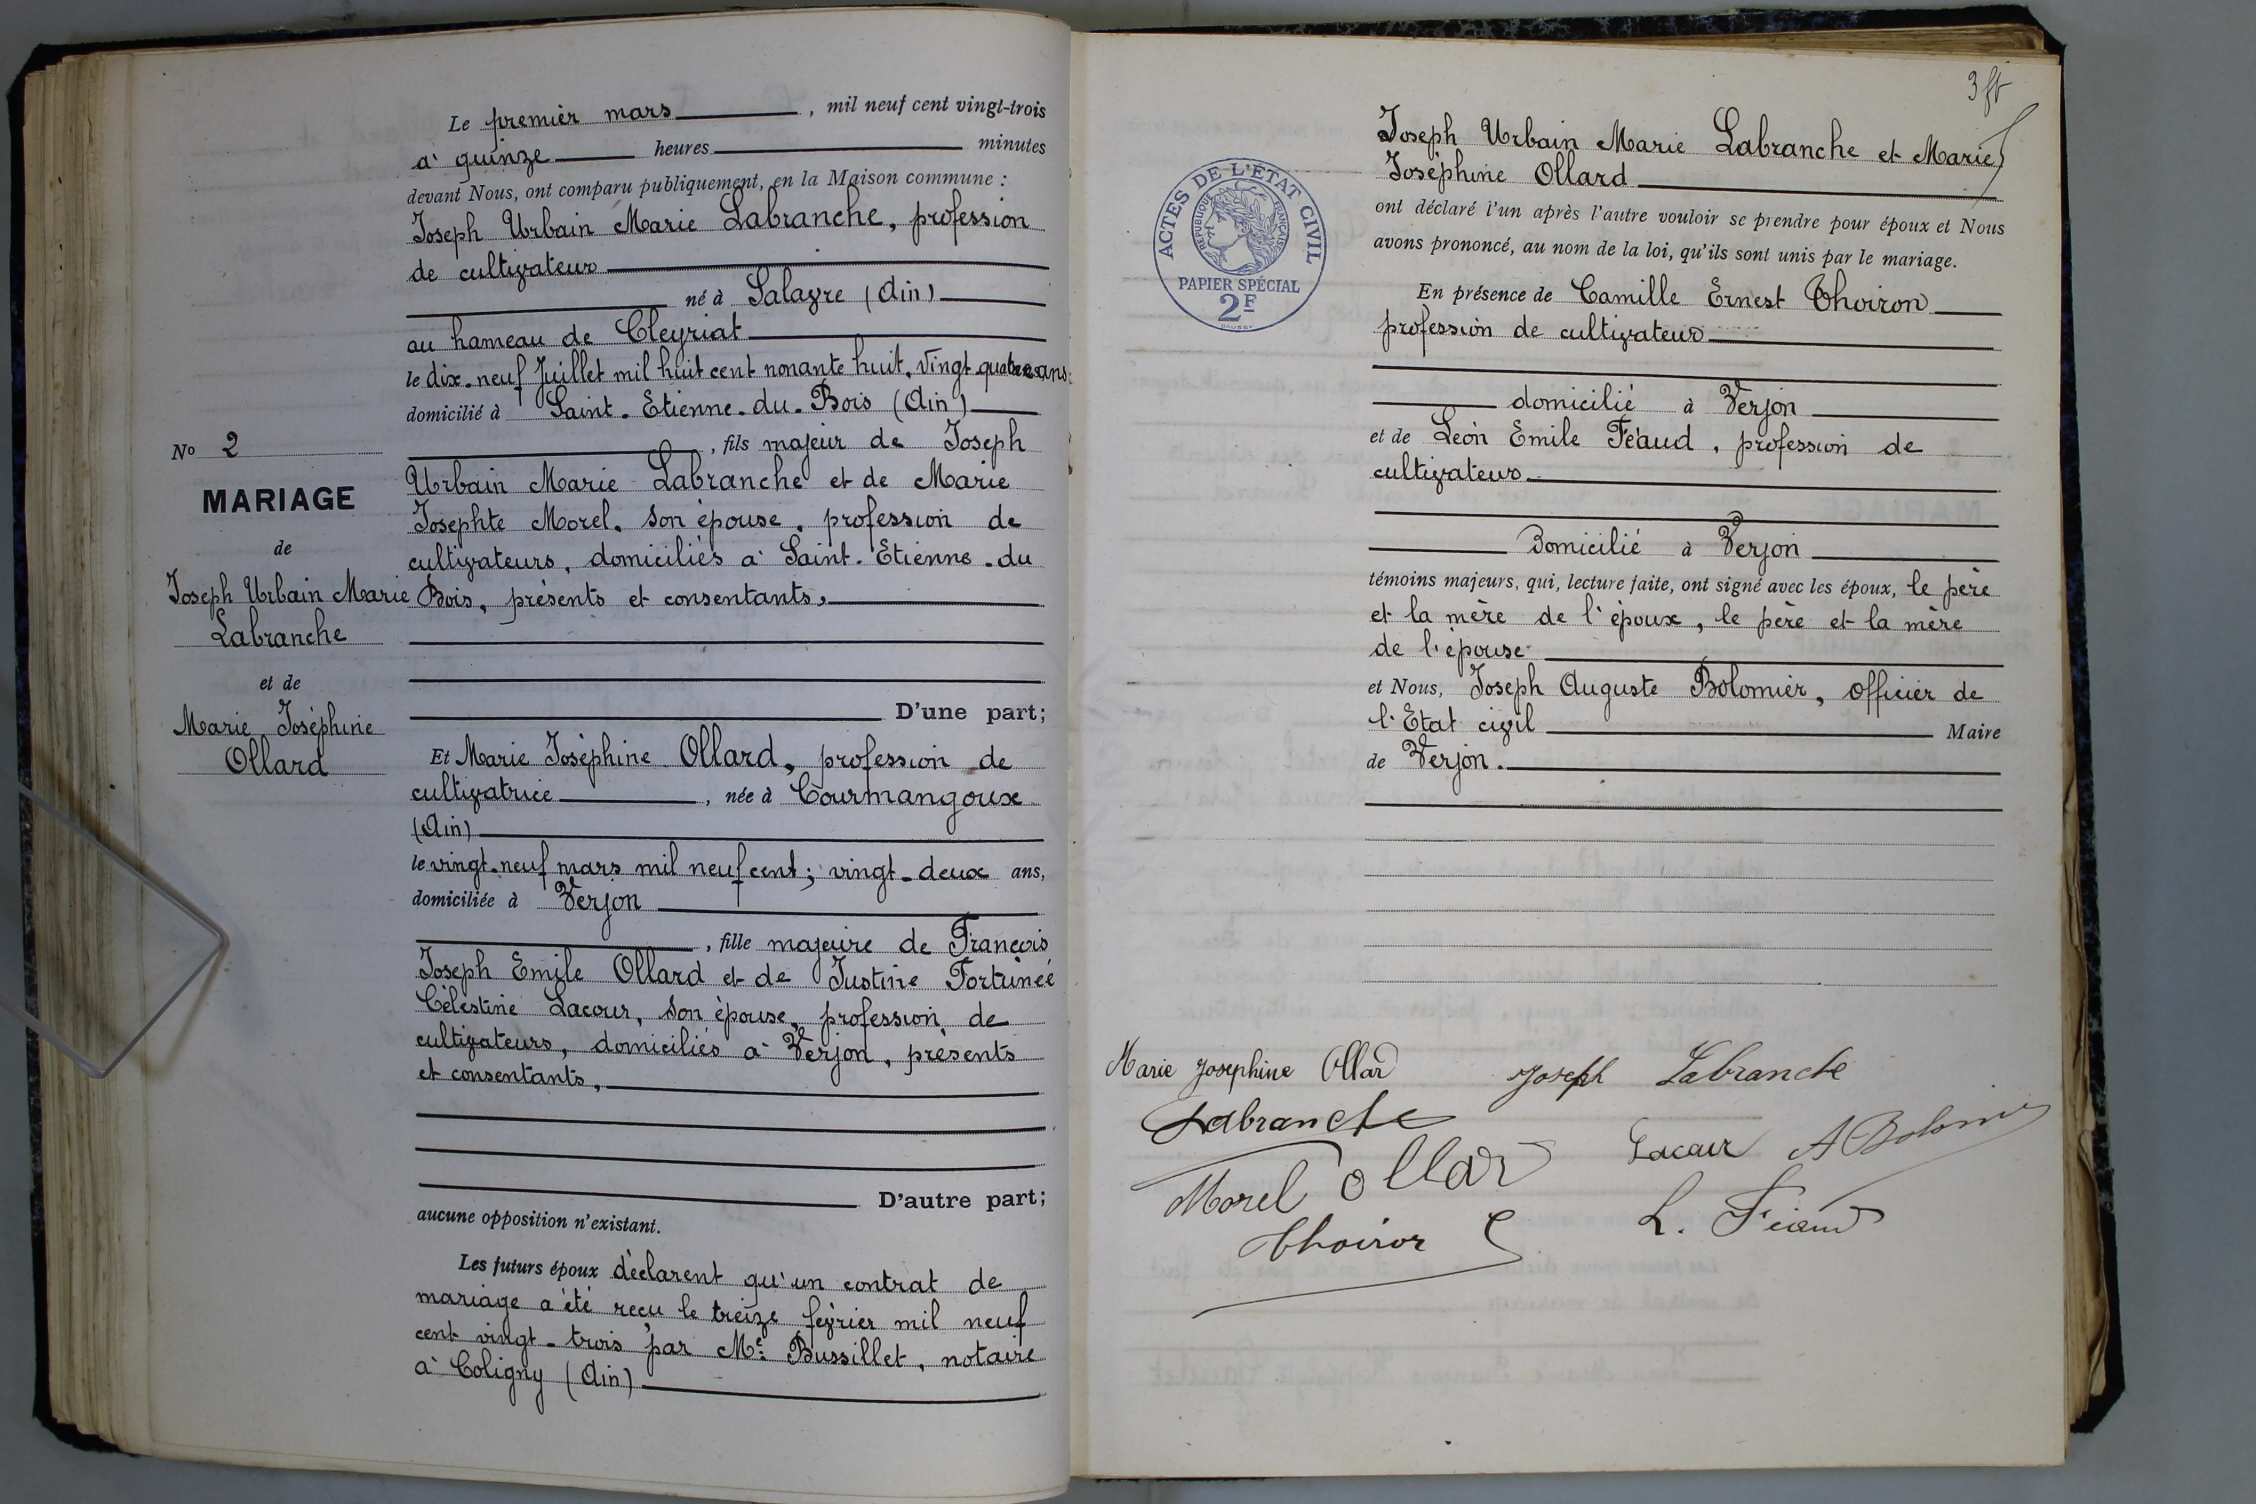 Le premier mars, mil neuf cent vingt-trois
à quinze heures minutes
devant Nous, ont comparu publiquement, en la Maison commune :
Joseph Urbain Marie Labranche, profession
de cultivateur
né à Salavre (Ain)
au hameau de Cleyriat
le dix-neuf Juillet mil huit cent nonante huit, vingt quatre ans
domicilié à Saint-Etienne-du-Bois (Ain)
, fils majeur de Joseph
Urbain Marie Labranche et de Marie
Josephte Morel, son épouse, profession de
cultivateurs, domiciliés à Saint-Etienne-du
Bois, présents et consentants,
D'une part;
Et Marie Joséphine Ollard, profession de
cultivatrice, née à Courmangoux
(Ain)
le vingt-neuf mars mil neuf cent; vingt-deux ans,
domiciliée à Verjon
, fille majeure de François
Joseph Emile Ollard et de Justine Fortunée
Célestine Lacour, son épouse, profession de
cultivateurs, domiciliés à Verjon, présents
et consentants,
D'autre part;
aucune opposition n'existant.
Les futurs époux déclarent qu'un contrat de
mariage a été reçu le treize février mil neuf
cent vingt-trois par Me Bussillet, notaire
à Coligny (Ain)
No 2
MARIAGE
de
Joseph Urbain Marie
Labranche
et de
Marie Joséphine
Ollard
Joseph Urbain Marie Labranche et Marie
Joséphine Ollard
ont déclaré l'un après l'autre vouloir se prendre pour époux et Nous
avons prononcé, au nom de la loi, qu'ils sont unis par le mariage.
En présence de Camille Ernest Thoiron
profession de cultivateur
domicilié à Verjon
et de Léon Emile Féaud, profession de
cultivateur
Domicilié à Verjon
témoins majeurs, qui, lecture faite, ont signé avec les époux, le père
et la mère de l'époux, le père et la mère
de l'épouse
et Nous, Joseph Auguste Bolomier, officier de
l'Etat civil Maire
de Verjon.
ACTES DE L'ÉTAT CIVIL
RÉPUBLIQUE FRANÇAISE
PAPIER SPÉCIAL
2F
Marie Josephine Ollard Joseph Labranche
Labranche
Lacour A Bolomier
Morel Ollard
L. Féaud
Thoiron